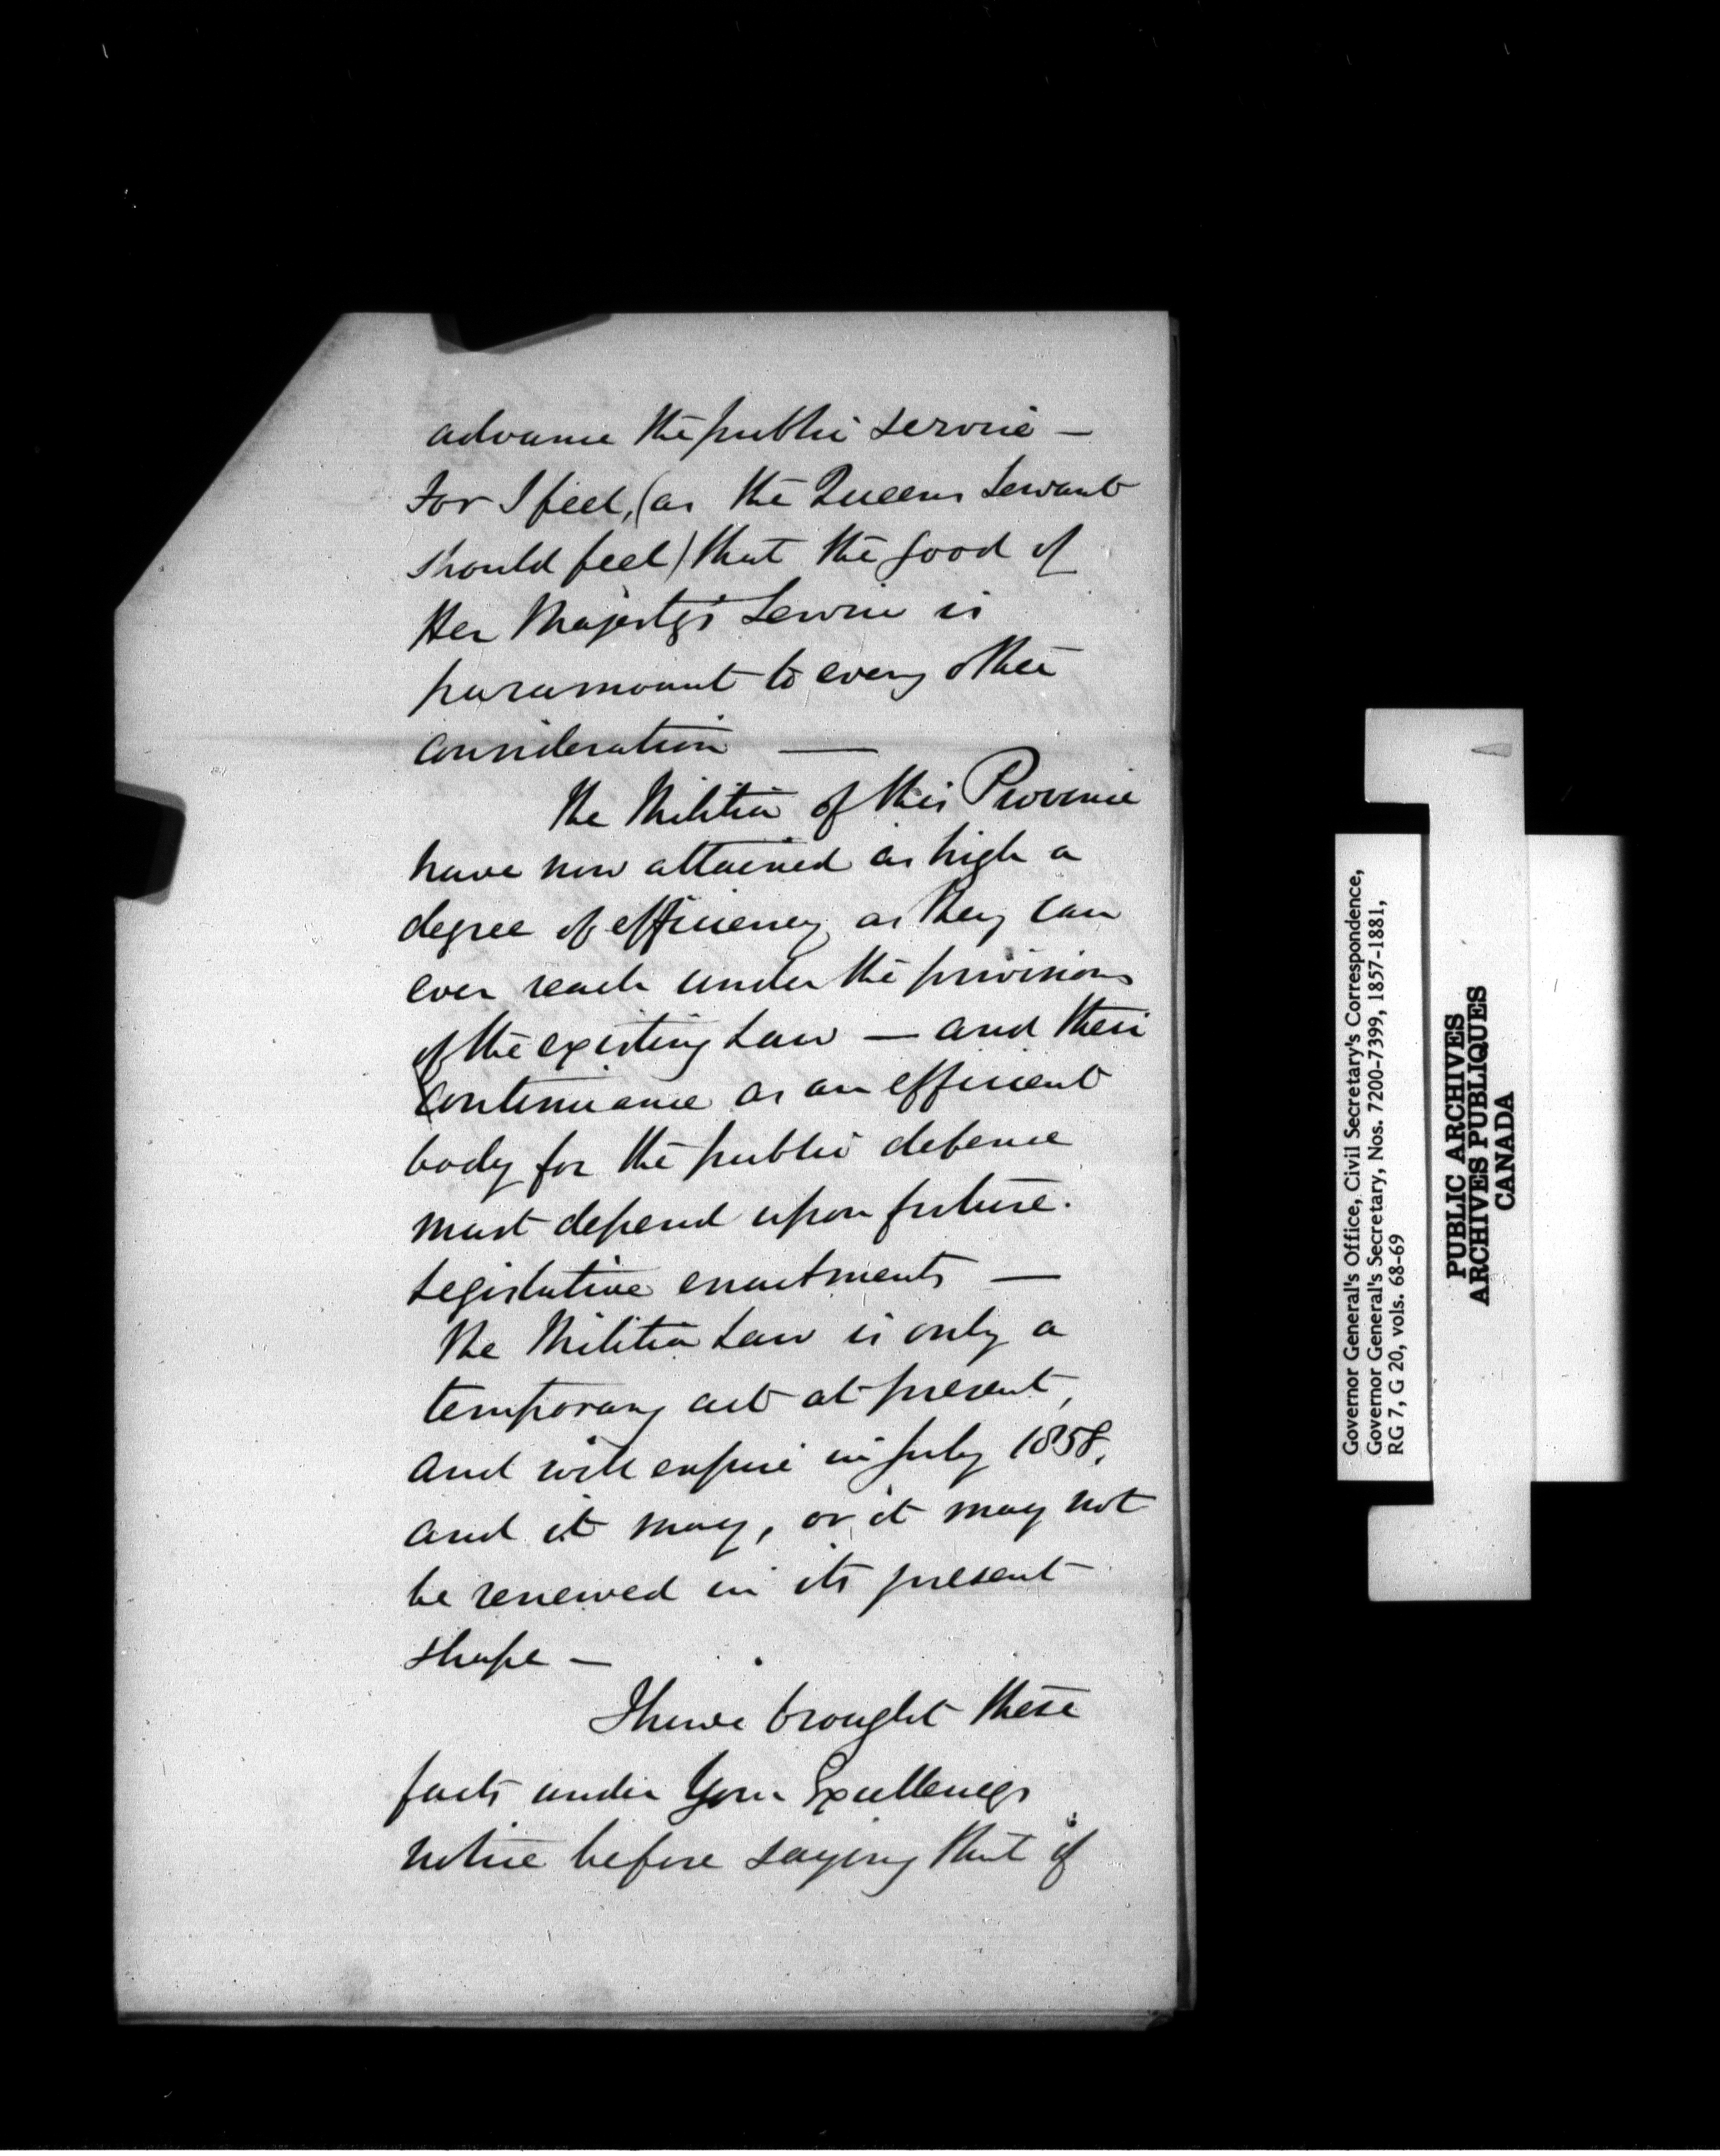 advance the public service —
For I feel, (as the Queens Servant
should feel) that the good of
Her Majesty's Service is
paramount to every other
consideration —
The Militia of this Province
have now attained as high a
degree of efficiency as they can
ever reach under the provisions
of the existing Law — and their
continuance as an efficient
body for the public defence
must depend upon future.
Legislative enactments —
The Militia Law is only a
temporary act at present,
and will expire in July 1858,
and it may, or it may not
be renewed in its present
shape —
I have brought these
facts under Your Excellencys
notice before saying that if
Governor General's Office, Civil Secretary's Correspondence,
Governor General's Secretary, Nos. 7200-7399, 1857-1881,
RG 7, G 20, vols. 68-69
PUBLIC ARCHIVES
ARCHIVES PUBLIQUES
CANADA